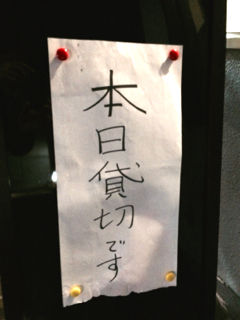 本日貸切です